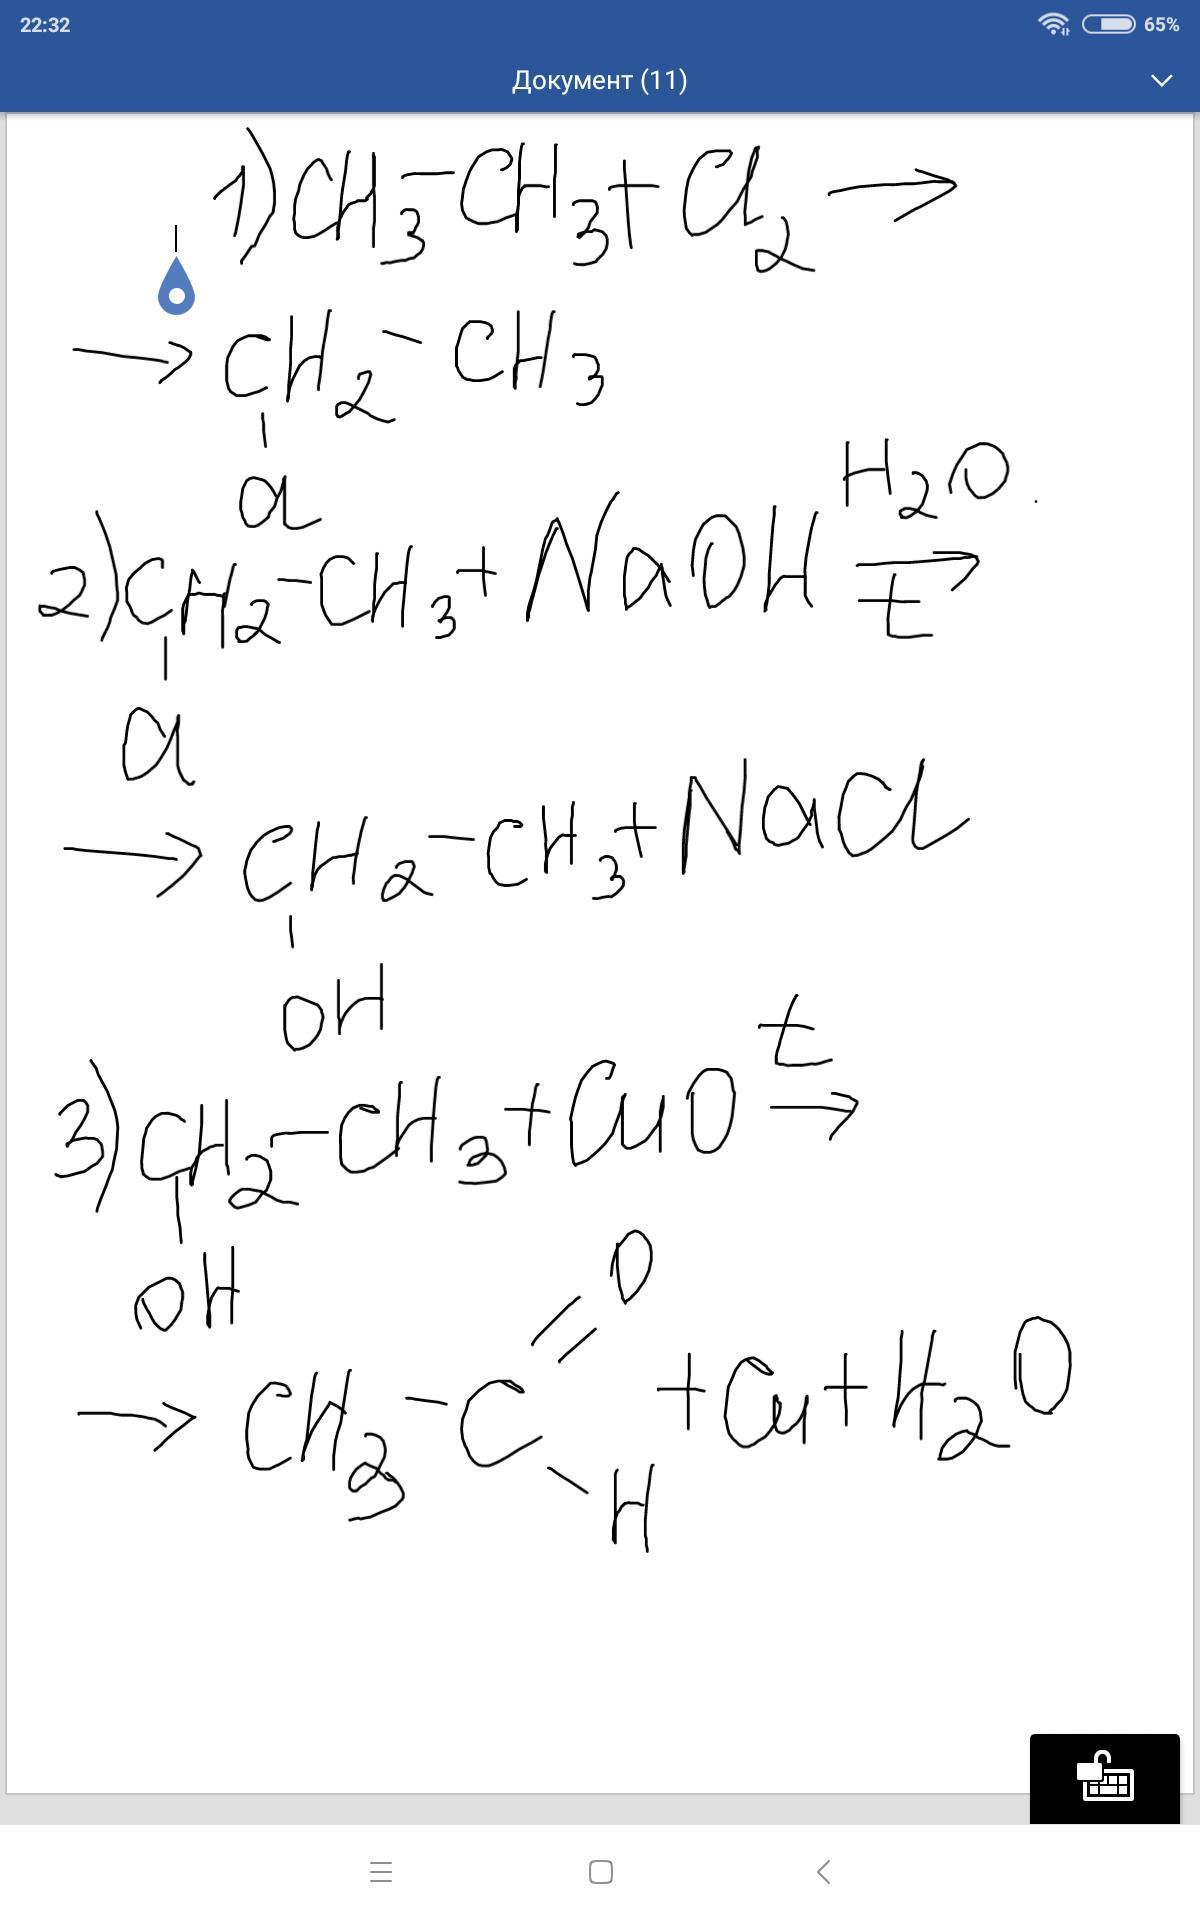 22:32 65%
Документ (11)
1) CH3-CH3+Cl2 →
→ CH2-CH3
Cl
H2O
2) CH2-CH3+NaOH →
t
Cl
→ CH2-CH3+NaCl
OH
t
3) CH2-CH3+CuO →
OH
O
→ CH3-C +Cu+H2O
H